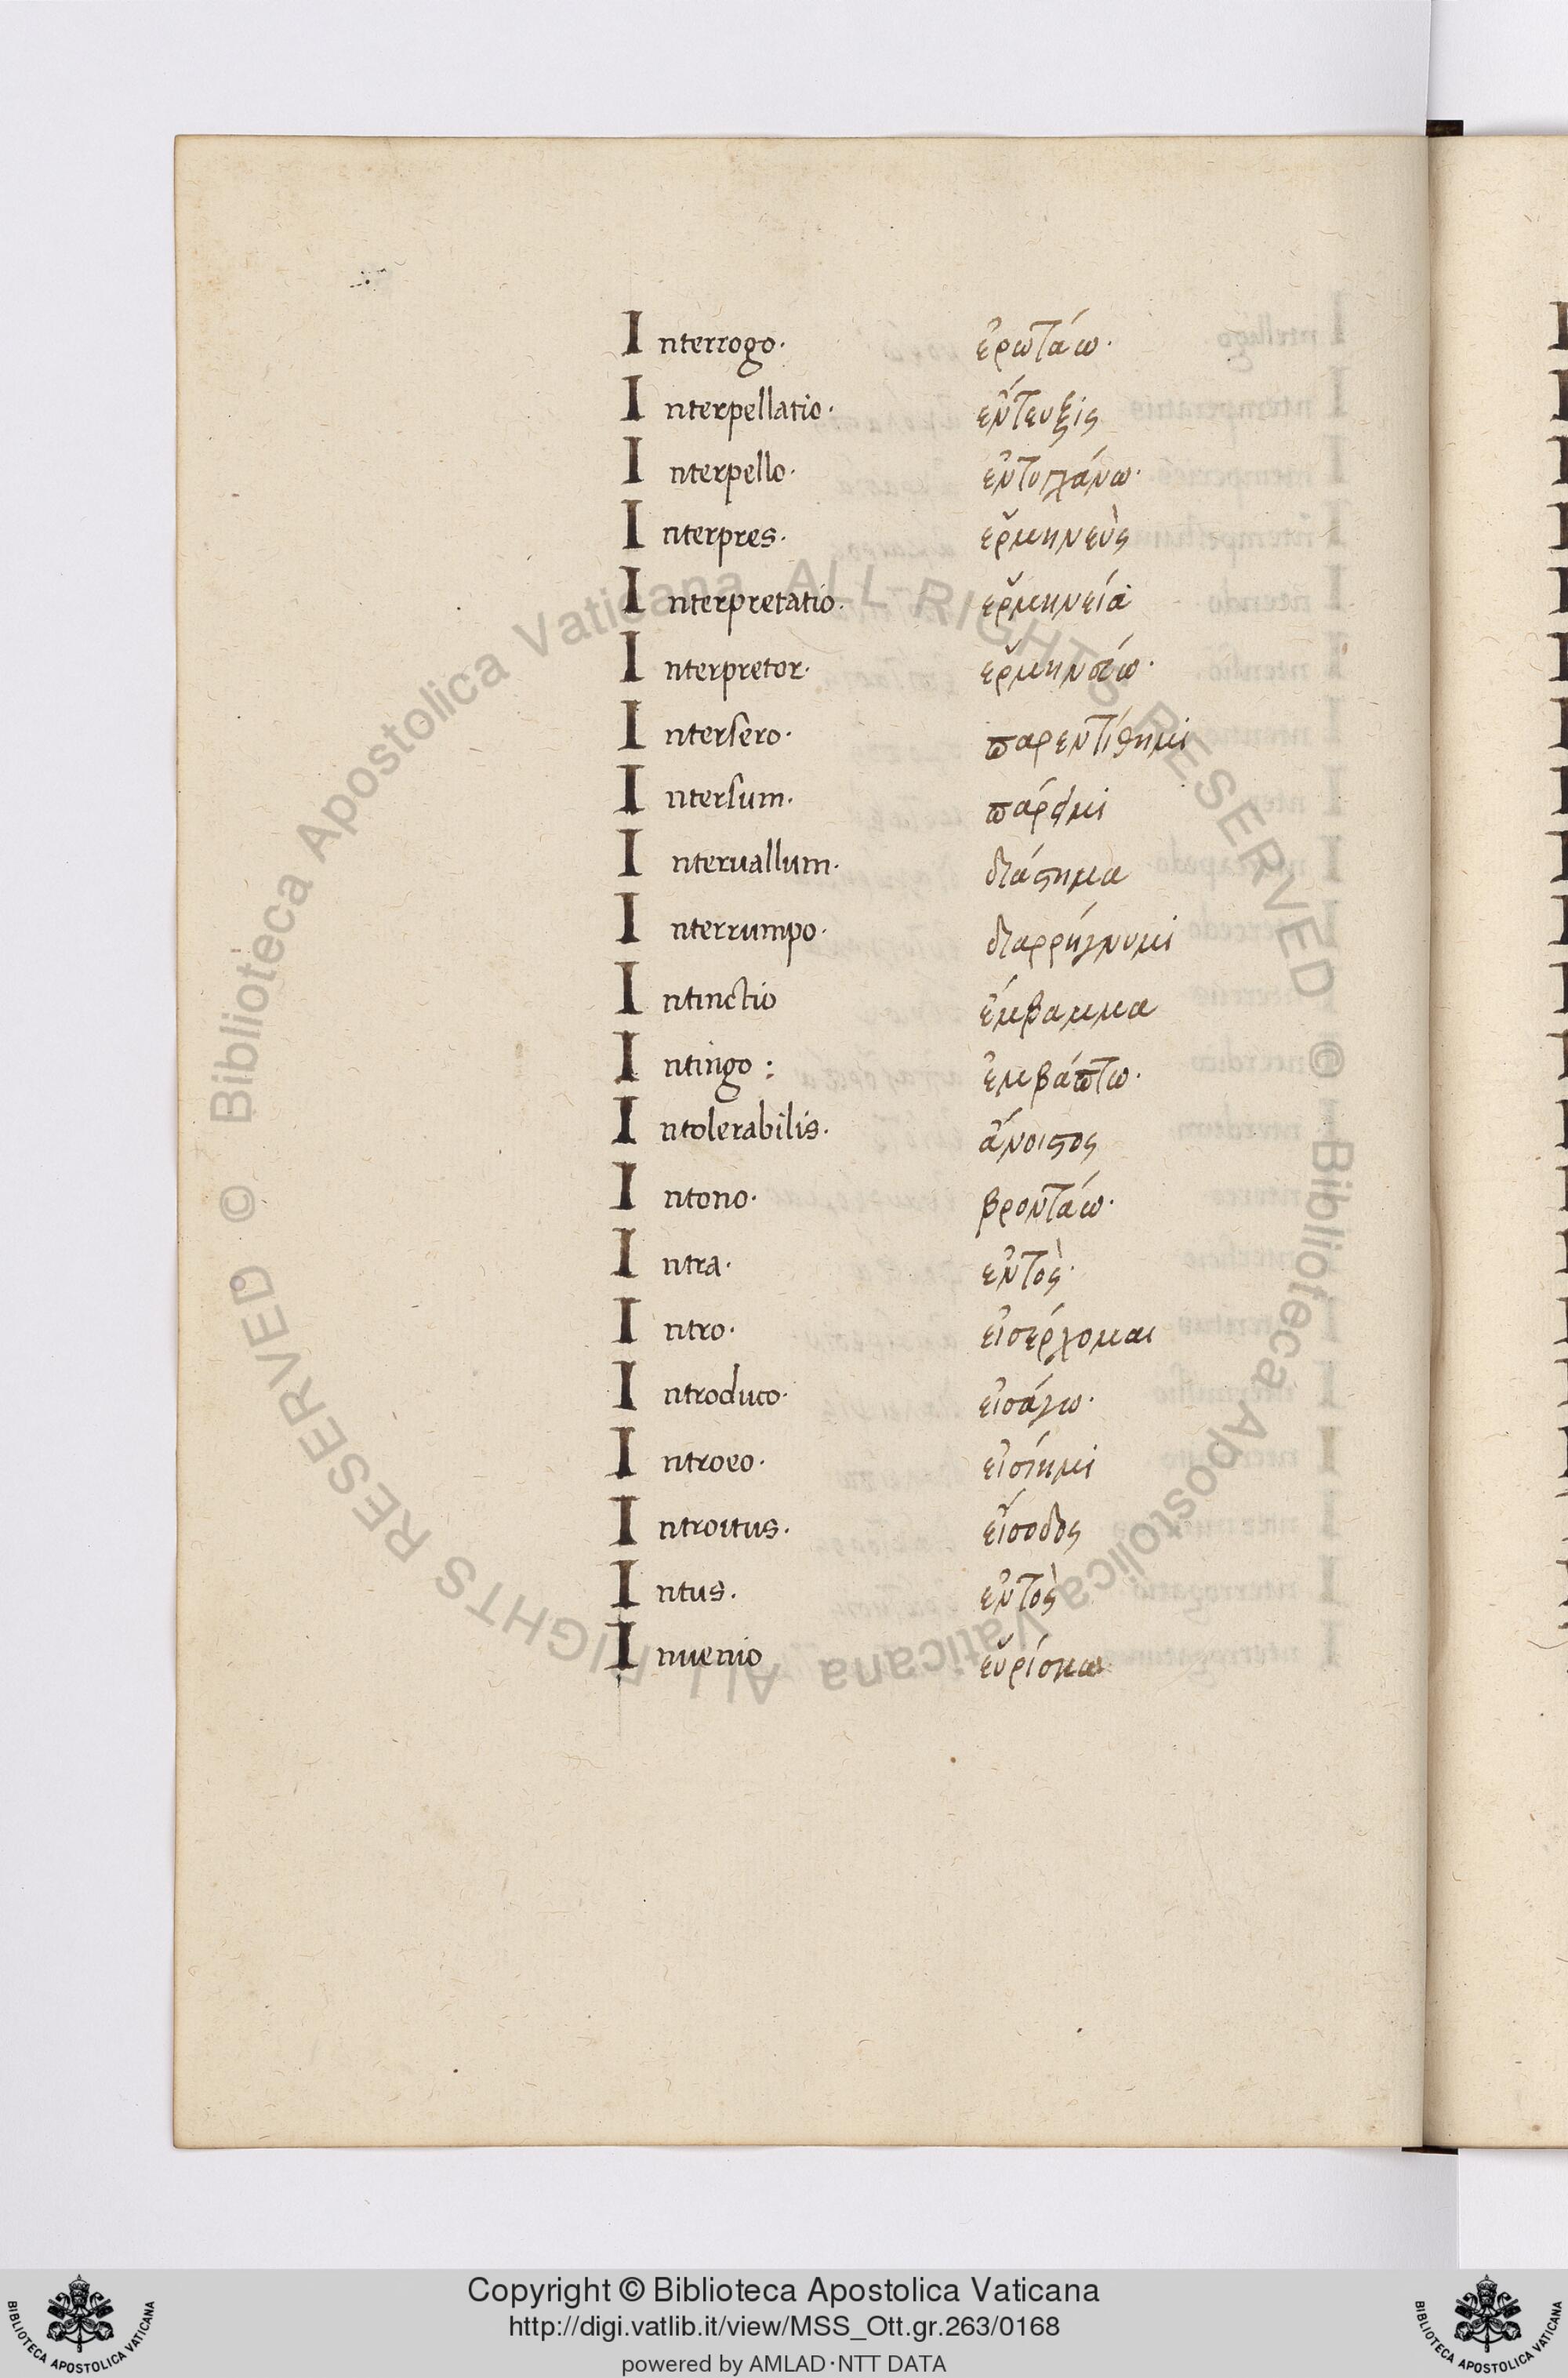 Interrogo· ἐρωτάω·
Interpellatio· ἔντευξις
Interpello· ἐντυγχάνω·
Interpres· ἑρμηνεὺς
Interpretatio· ἑρμηνεία
Interpretor· ἑρμηνεύω·
Intersero· παρεντίθημι
Intersum· πάρειμι
Interuallum· διάστημα
Interrumpo· διαρρήγνυμι
Intinctio ἔμβαμμα
Intingo : ἐμβάπτω·
Intolerabilis· ἄνοιστος
Intono· βροντάω·
Intra· ἐντὸς·
Intro· εἰσέρχομαι
Introduco· εἰσάγω·
Introeo· εἰσίημι
Introitus· εἴσοδος
Intus· ἐντὸς
Inuenio εὑρίσκω
Copyright © Biblioteca Apostolica Vaticana
http://digi.vatlib.it/view/MSS_Ott.gr.263/0168
powered by AMLAD·NTT DATA
BIBLIOTECA APOSTOLICA VATICANA
BIBLIOTECA APOSTOLICA VATICANA
© Biblioteca Apostolica Vaticana ALL RIGHTS RESERVED
© Biblioteca Apostolica Vaticana ALL RIGHTS RESERVED